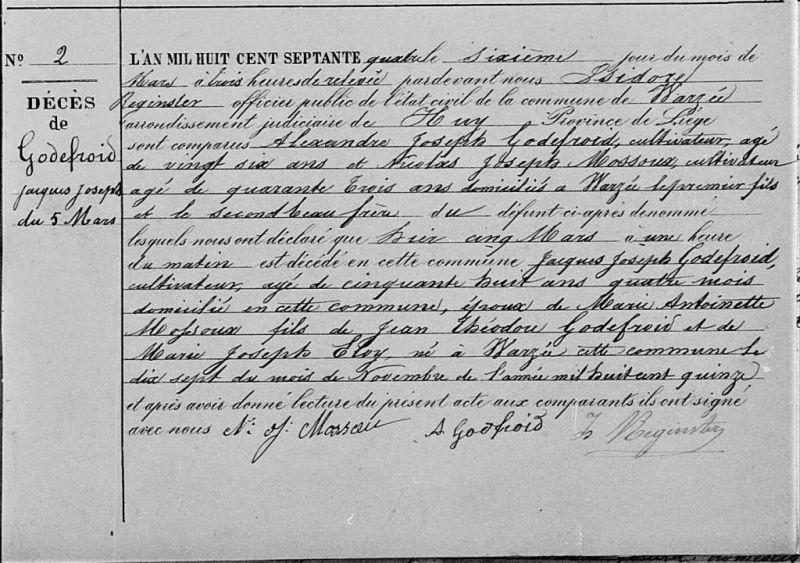 N° 2
DÉCÈS
de
Godefroid
Jacques Joseph
du 5 Mars
L'AN MIL HUIT CENT SEPTANTE quatre le sixième jour du mois de
Mars à trois heures de relevée pardevant nous Isidore
Reginster officier public de l'état civil de la commune de Warzée
arrondissement judiciaire de Huy Province de Liège
sont comparus Alexandre Joseph Godefroid, cultivateur, agé
de vingt six ans et Nicolas Joseph Mossoux, cultivateur
agé de quarante trois ans domiciliés a Warzée le premier fils
et le second beau frère du défunt ci-après denommé
lesquels nous ont déclaré que hier cinq Mars à une heure
du matin est décédé en cette commune Jacques Joseph Godefroid,
cultivateur, agé de cinquante huit ans quatre mois
domicilié en cette commune, époux de Marie Antoinette
Mossoux fils de Jean Théodore Godefroid et de
Marie Joseph Eloy, né à Warzée cette commune le
dix sept du mois de Novembre de l'année mil huit cent quinze
et après avoir donné lecture du présent acte aux comparants ils ont signé
avec nous N. J. Mossoux A Godfroid Is Reginster